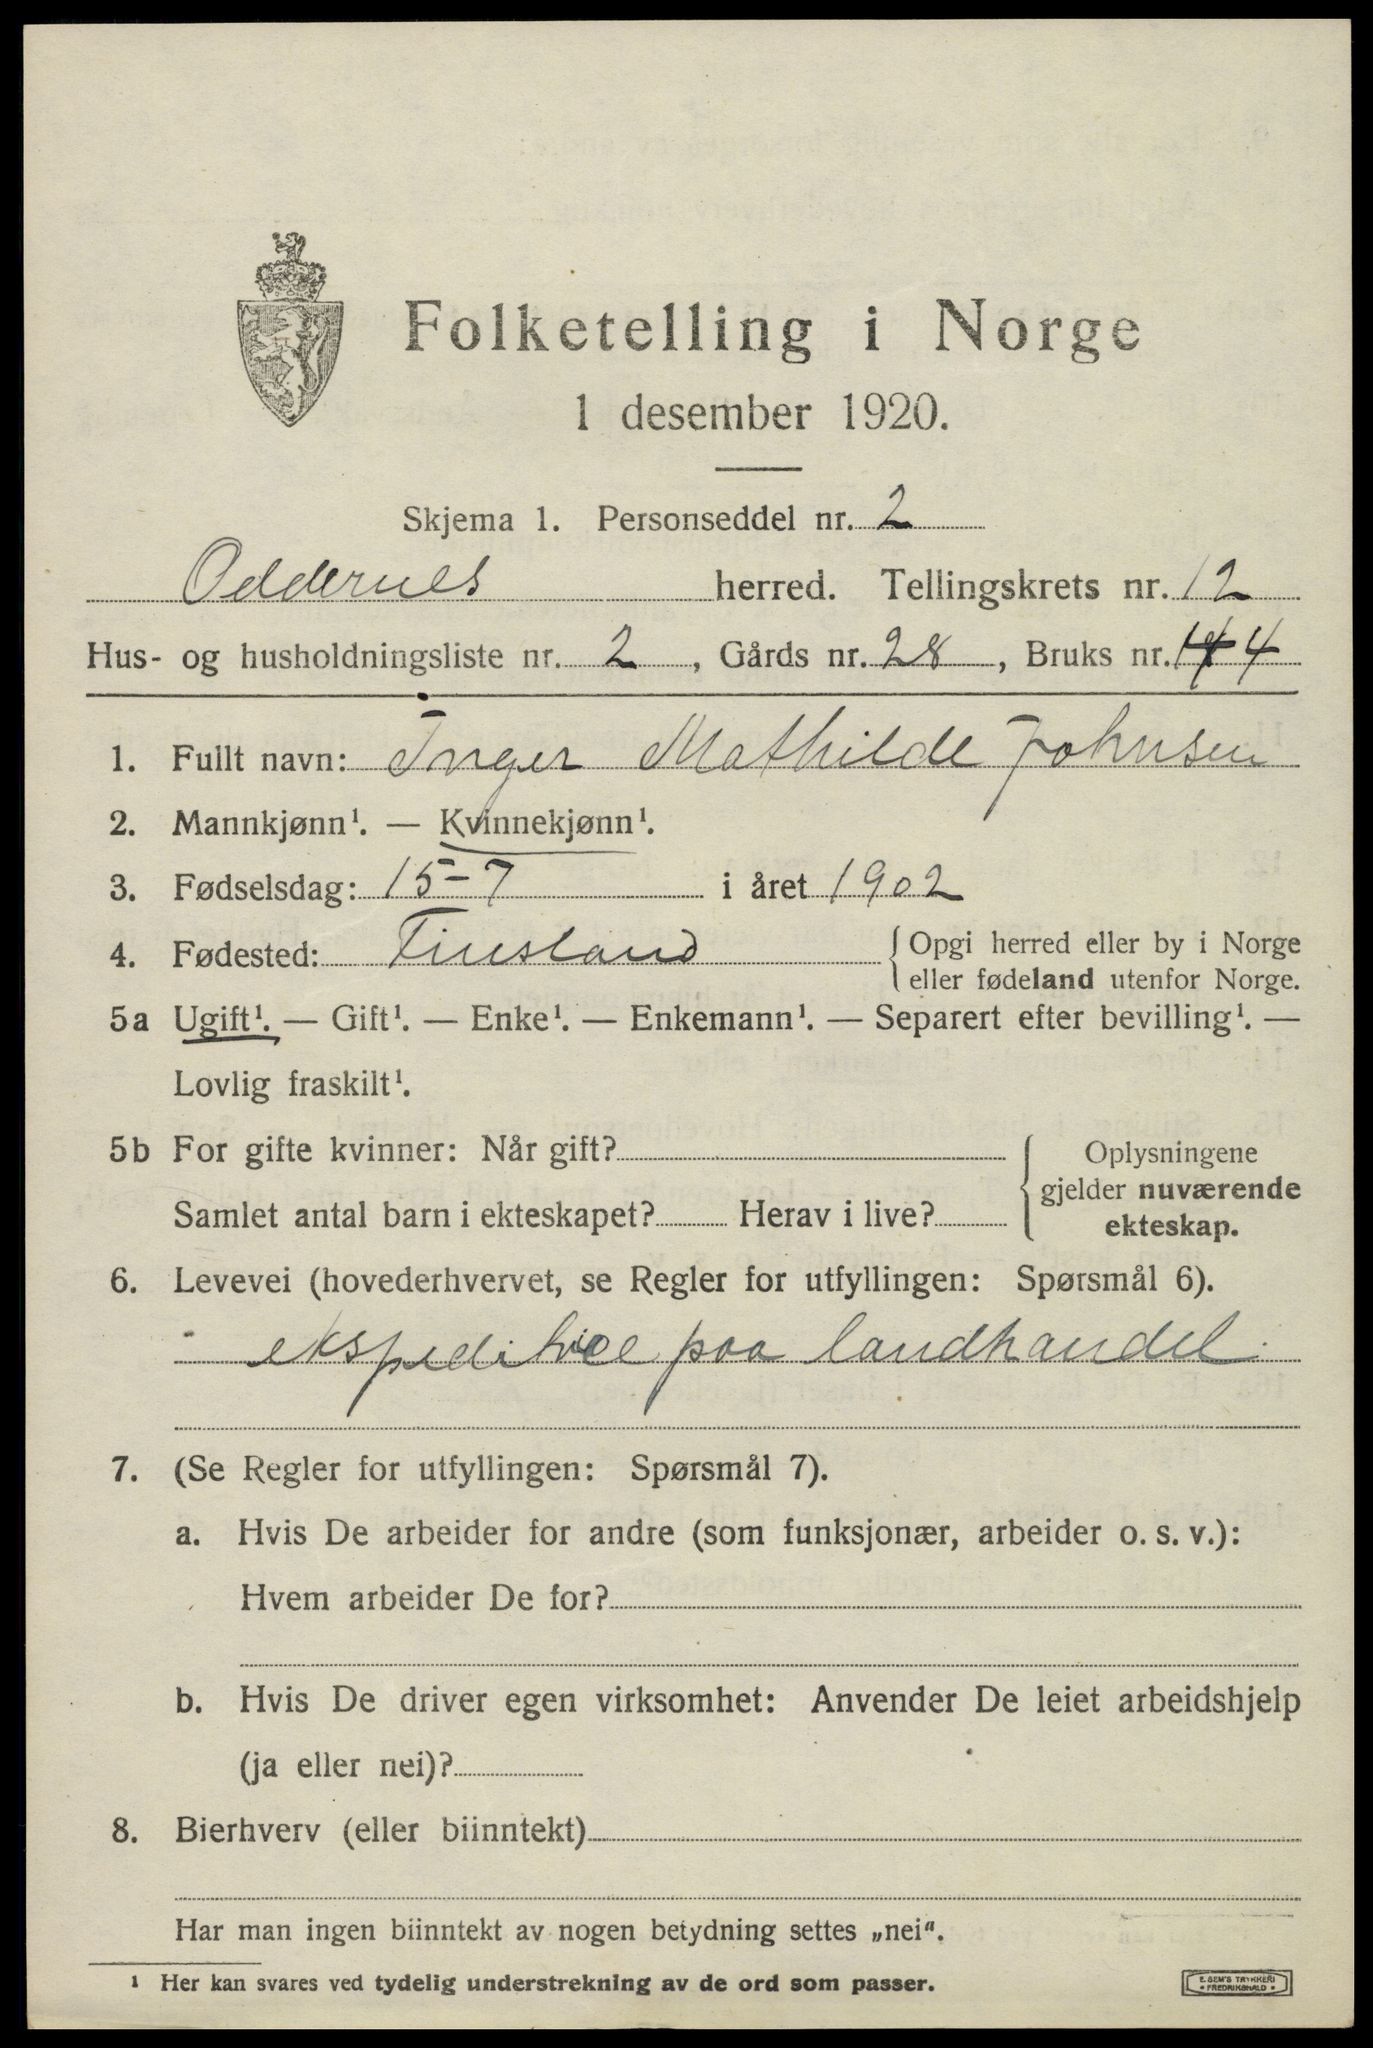 Folketelling i Norge
1 desember 1920.
Skjema 1. Personseddel nr. 2
Oddernes herred. Tellingskrets nr. 12
Hus- og husholdningsliste nr. 2, Gårds nr. 28, Bruks nr. 4
1. Fullt navn: Inger Mathilde Johnsen
2. Mannkjønn¹. — Kvinnekjønn¹.
3. Fødselsdag: 15-7 i året 1902
4. Fødested: Finsland { Opgi herred eller by i Norge
eller fødeland utenfor Norge.
5a Ugift¹. — Gift¹. — Enke¹. — Enkemann¹. — Separert efter bevilling¹. —
Lovlig fraskilt¹.
5b For gifte kvinner: Når gift?
Samlet antal barn i ekteskapet? Herav i live?
Oplysningene
gjelder nuværende
ekteskap.
6. Levevei (hovederhvervet, se Regler for utfyllingen: Spørsmål 6).
ekspeditrice paa landhandel.
7. (Se Regler for utfyllingen: Spørsmål 7).
a. Hvis De arbeider for andre (som funksjonær, arbeider o. s. v.):
Hvem arbeider De for?
b. Hvis De driver egen virksomhet: Anvender De leiet arbeidshjelp
(ja eller nei)?
8. Bierhverv (eller biinntekt)
Har man ingen biinntekt av nogen betydning settes „nei".
¹ Her kan svares ved tydelig understrekning av de ord som passer.
E. SEM'S TRYKKERI
• FREDRIKSHALD •